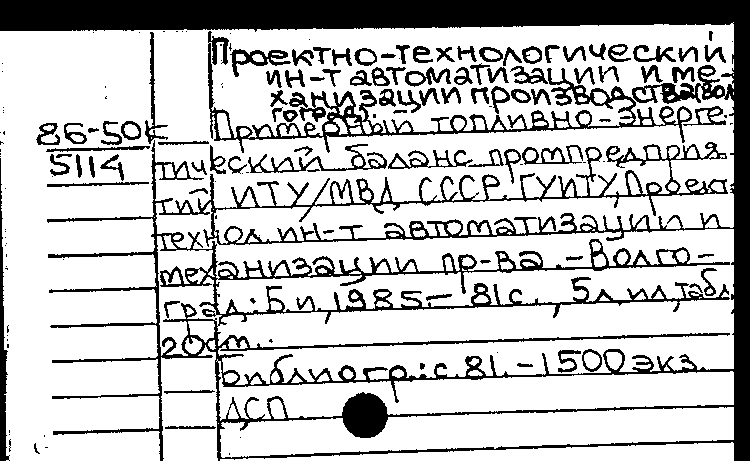 Проектно-технологический
ин-т автоматизации и ме-
ханизации производства (Вол
гоград).
86-50к
5114
Примерный топливно-энерге-
тический баланс промпредприя-
тий ИТУ/МВД СССР. ГУИТУ, Проект.
технол. ин-т автоматизации и
механизации пр-ва. - Волго-
град: Б.и., 1985. - 81 с., 5 л. ил, табл.
20 см..
Библиогр.: с. 81. - 1500 экз.
ДСП.